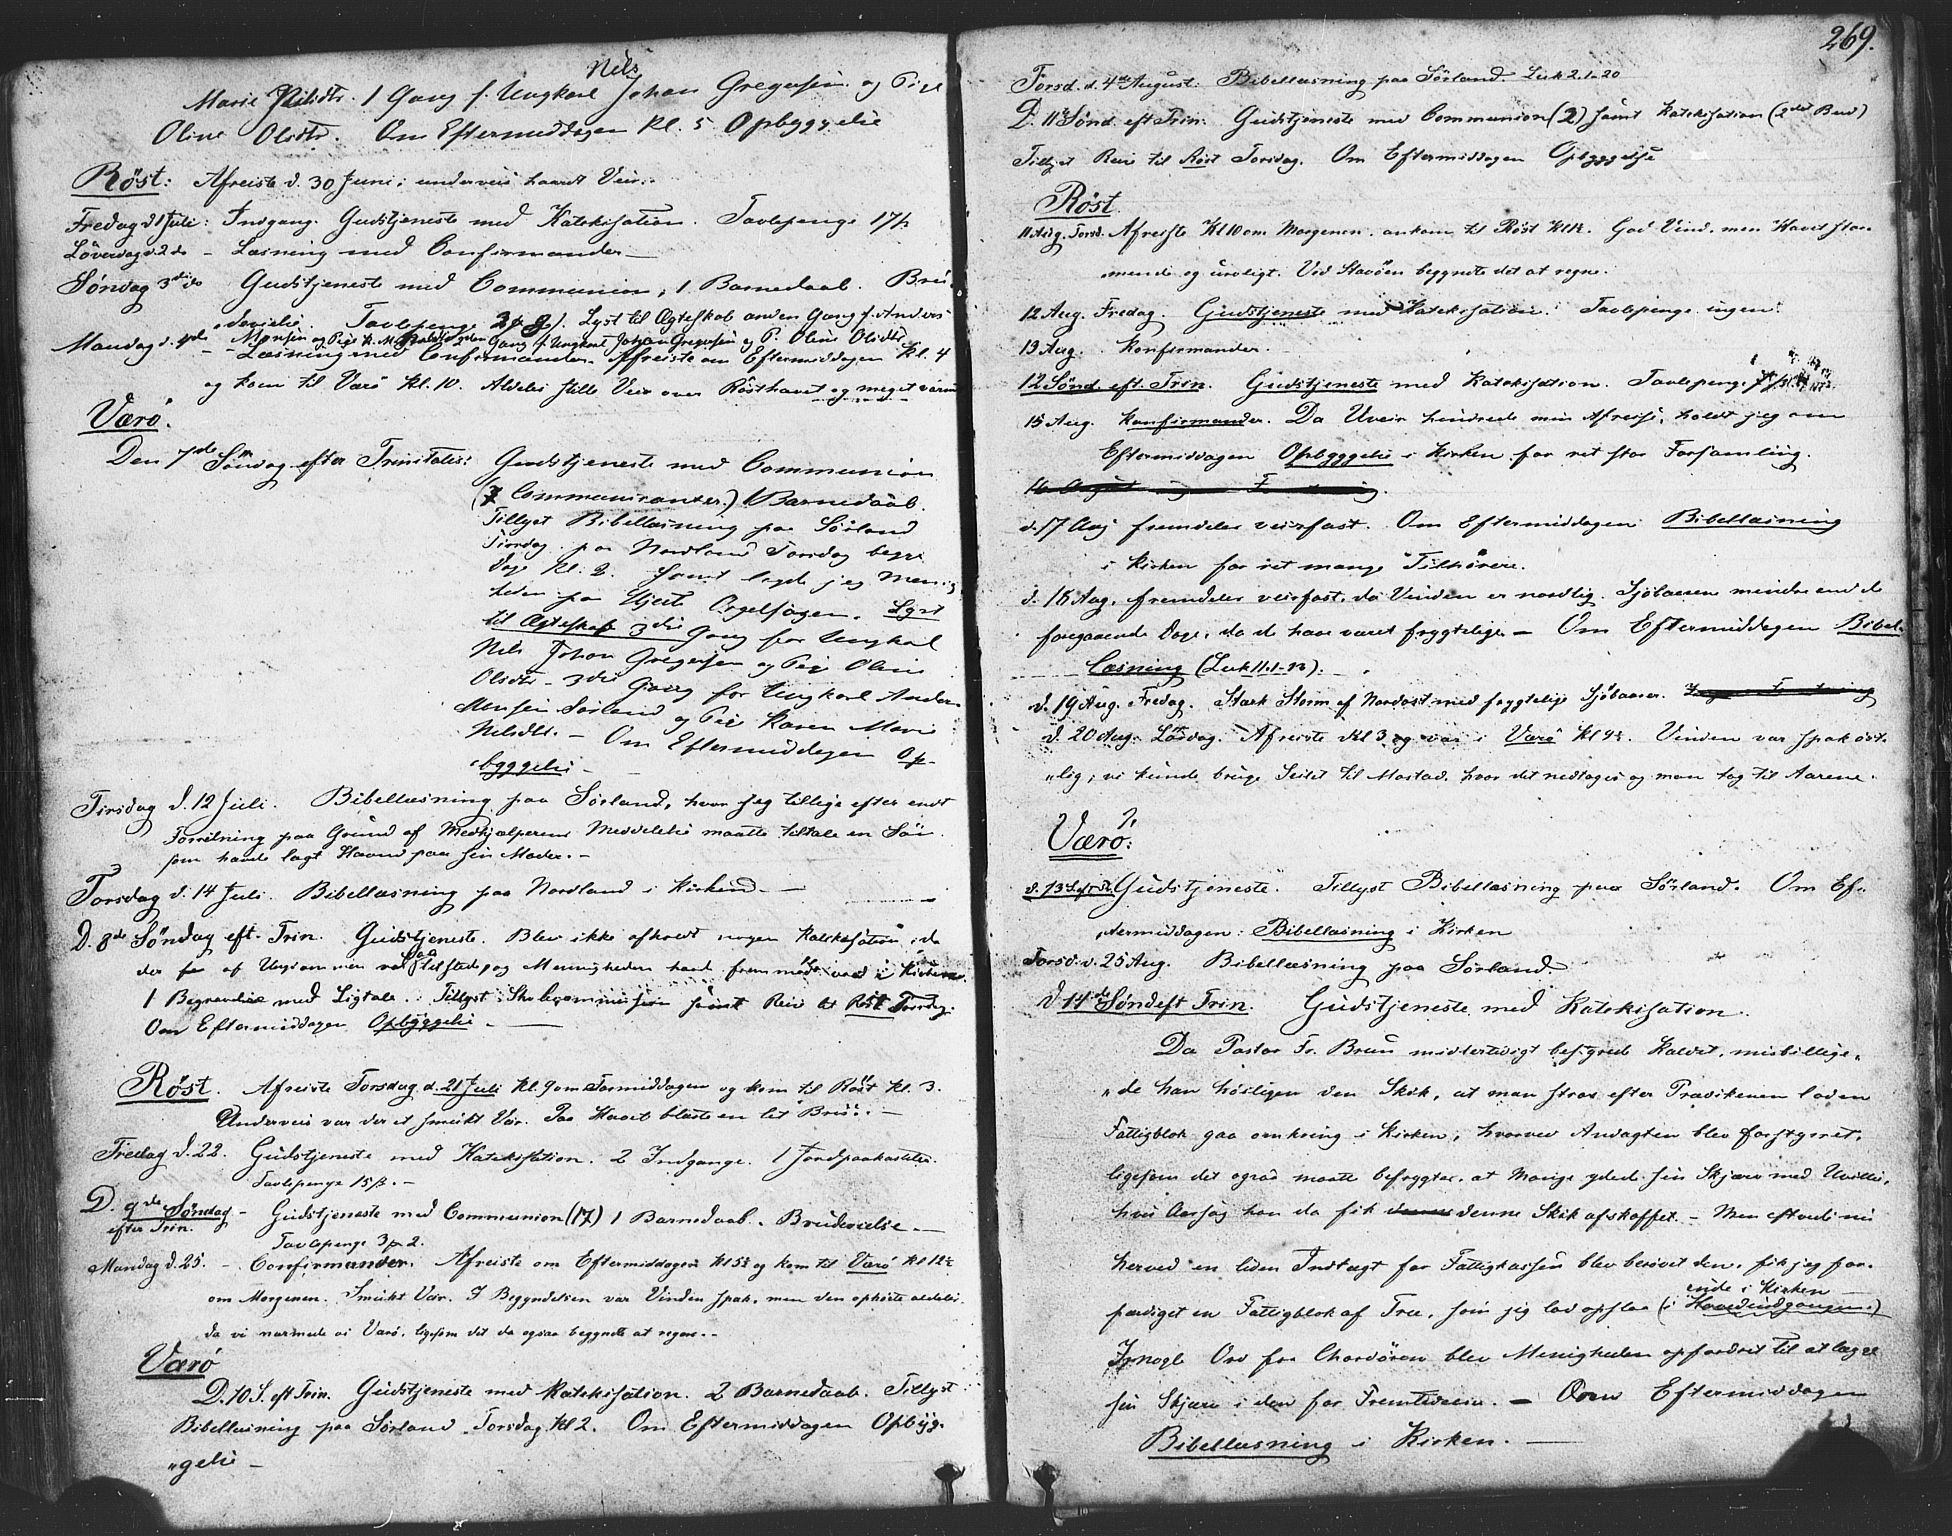 Nils
Marie Nilsdtr. 1 Gang f. Ungkarl Johan Gregersen og Pige
Oline Olsdtr. Om Eftermiddagen Kl. 5 Opbyggelse
Röst: Afreiste d. 30 Juni; underveis haardt Veir.
Fredag d. 1 Juli: Indgang. Gudstjeneste med Katekisation. Tavlepenge 17 ß
Löverdag d. 2 do - Læsning med Confirmander
Söndag 3die do Gudstjeneste med Communion, 1 Barnedaab. Bru-
devielse. Tavlepenge Lyst til Ægteskab anden Gang f. Anders
Monsen og Pige K. M. Nilsdtr 2den Gang f. Ungkarl Johan Gregersen og P. Oline Olsdtr
Mandag d. 4de - Læsning med Confirmander. Afreiste om Eftermiddagen Kl. 4
og kom til Værö Kl. 10. Aldeles stille Veir over Rösthavet og meget varmt
Værö.
Den 7de Söndag efter Trinitatis: Gudstjeneste med Communion
(7 Communicanter.) 1 Barnedaab.
Tillyst Bibellæsning paa Sörland
Tirsdag, paa Nordland Torsdag begge
Dage Kl. 2. Samt lagde jeg Menig-
heden paa Hjerte Orgelsagen. Lyst
til Ægteskab 3die Gang for Ungkarl
Nils Johan Gregersen og Pige Oline
Olsdtr - 3die Gang for Ungkarl Anders
Monsen Sörland og Pige Karen Marie
Nilsdtr. - Om Eftermiddagen Op-
byggelse -
Tirsdag d. 12 Juli. Bibellæsning paa Sörland, hvor jeg tillige efter endt
Forretning paa Grund af Medhjælperens Meddelelse maatte tiltale en Sön
som havde lagt Haand paa sin Moder. -
Torsdag d. 14 Juli. Bibellæsning paa Nordland i Kirken. -
D. 8de Söndag eft. Trin. Gudstjeneste. Blev ikke afholdt nogen Katekisation, da
der faa af Ungdommen var tilstede, og Menigheden havde fremmöde ved i Kirken.
1 Begravelse med Ligtale. Tillyst: Skolecommission samt Reise til Röst Torsdag.
Om Eftermiddagen Opbyggelse. -
Röst. Afreiste Torsdag d. 21 Juli Kl. 9 om Formiddagen og kom til Röst Kl. 3.
Underveis var der et smukt Veir. Paa Havet blæste en let Bris. -
Fredag d. 22. Gudstjeneste med Katekisation. 2 Indgange. 1 Jordpaakastelse.
Tavlepenge 15 ß. -
D. 9de Söndag - Gudstjeneste med Communion (17) 1 Barnedaab. Brudevielse. -
efter Trin. Tavlepenge 3 2.
Mandag d. 25. - Confirmander. Afreiste om Eftermiddagen Kl 5½ og kom til Værö Kl 12½
om Morgenen. Smukt Veir. I Begyndelsen var Vinden spak, men den ophörte aldeles
da vi nærmede os Værö, ligesom det da ogsaa begyndte at regne. -
Værö
D. 10. S. eft Trin. Gudstjeneste med Katekisation. 2 Barnedaab. Tillyst
Bibellæsning paa Sörland Torsdag Kl 2. Om Eftermiddagen Opbyg-
gelse -
269.
Torsd. d. 4de August. Bibellæsning paa Sörland. Luk 2.1-20
D. 11 Sönd. eft Trin. Gudstjeneste med Communion (2) samt Katekisation (2det Bud)
Tillyst Reise til Röst Torsdag. Om Eftermiddagen Opbyggelse
Röst.
11 Aug. Torsd. Afreiste Kl 10 om Morgenen, ankom til Röst Kl. God Vind, men Havet stor-
mende og uroligt. Ved Stavöen begyndte det at regne.
12 Aug. Fredag. Gudstjeneste med Katekisation. Tavlepenge ingen.
13 Aug. Konfirmander.
12 Sönd eft. Trin. Gudstjeneste med Katekisation. Tavlepenge
15 Aug. Konfirmander. Da Uveir hindrede min Afreise, holdt jeg om
Eftermiddagen Opbyggelse i Kirken for ret stor Forsamling.
16 August
d. 17 Aug fremdeles veirfast. Om Eftermiddagen Bibellæsning
i Kirken for ret mange Tilhörere.
d. 18 Aug. fremdeles veirfast, da Vinden er nordlig. Sjöbaaren mindre end de
foregaaende Dage, da de have været frygtelige. - Om Eftermiddagen Bibel-
læsning (Luk 11.1-13).
d. 19 Aug. Fredag. Stærk Storm af Nordost med frygtelige Sjöbaarer.
d. 20 Aug. Lördag. Afreiste Kl 3 og var i Værö Kl 9½. Vinden var spak öst-
lig; vi kunde bruge Seilet til Mostad, hvor det nedtoges og man tog til Aarene.
Værö:
d. 13 S. eft. Gudstjeneste. Tillyst Bibellæsning paa Sörland. Om Ef-
termiddagen: Bibellæsning i Kirken
Torsd. d. 25 Aug. Bibellæsning paa Sörland.
D 14de Sönd eft Trin. Gudstjeneste med Katekisation.
Da Pastor Fr. Bruun midlertidigt besörgede Kaldet, misbillige-
de han höiligen den Skik, at man strax efter Prædikenen loden
Fattigblok gaa omkring i Kirken, hvorved Andagten blev forstyrret,
ligesom det ogsaa maatte befrygtes, at Mange ydede sin Skjærv med Uvillie,
hvis Aarsag han da fik denne Skik afskaffet. - Men eftersom nu
herved en liden Indtægt for Fattigkassen blev berövet den, fik jeg for-
færdiget en Fattigblok af Træ, som jeg lod opslaa (i Hovedindgangen.)
ende i Kirken
I nogle Ord fra Chordören blev Menigheden opfordret til at lægge
sin Skjærv i den for Fremtiden. - Om Eftermiddagen
Bibellæsning i Kirken. -